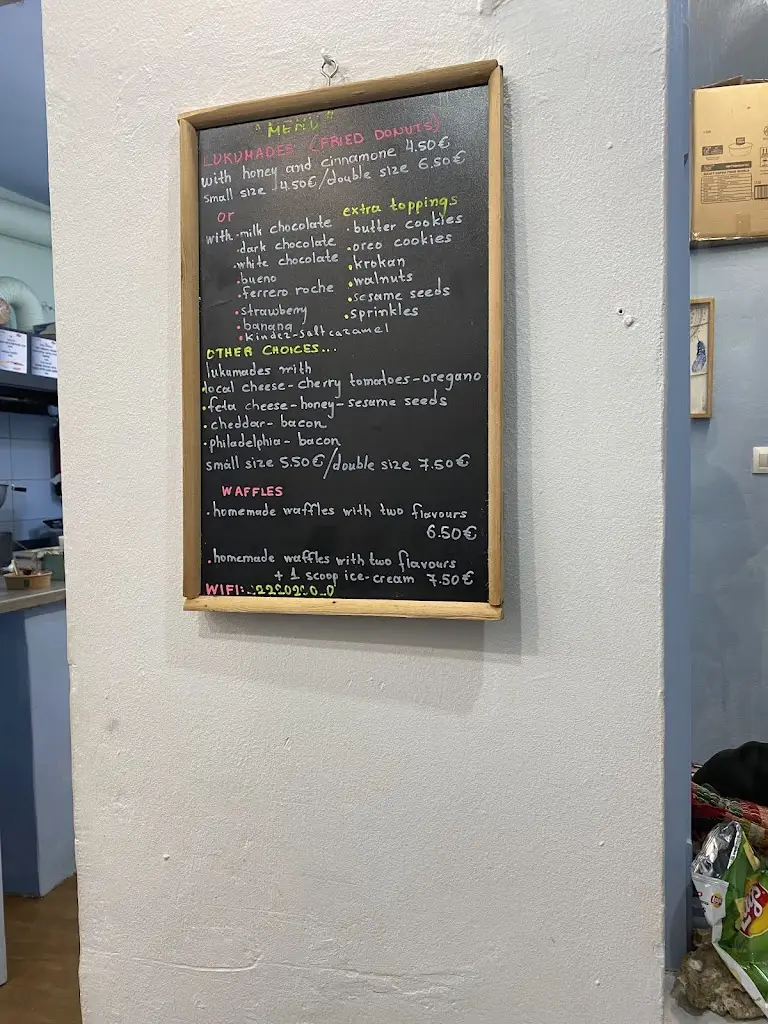 "MENU"
LUKUMADES (FRIED DONUTS)
with honey and cinnamone 4.50€
small size 4.50€/double size 6.50€
or
with
• milk chocolate
• dark chocolate
• white chocolate
• bueno
• ferrero roche
• strawberry
• banana
• kinder-salt caramel
extra toppings
• butter cookies
• oreo cookies
• krokan
• walnuts
• sesame seeds
• sprinkles
OTHER CHOICES...
lukumades with
• local cheese-cherry tomatoes-oregano
• feta cheese-honey-sesame seeds
• cheddar-bacon
• philadelphia-bacon
small size 5.50€/double size 7.50€
WAFFLES
• homemade waffles with two flavours
6.50€
• homemade waffles with two flavours
+ 1 scoop ice-cream 7.50€
WIFI: